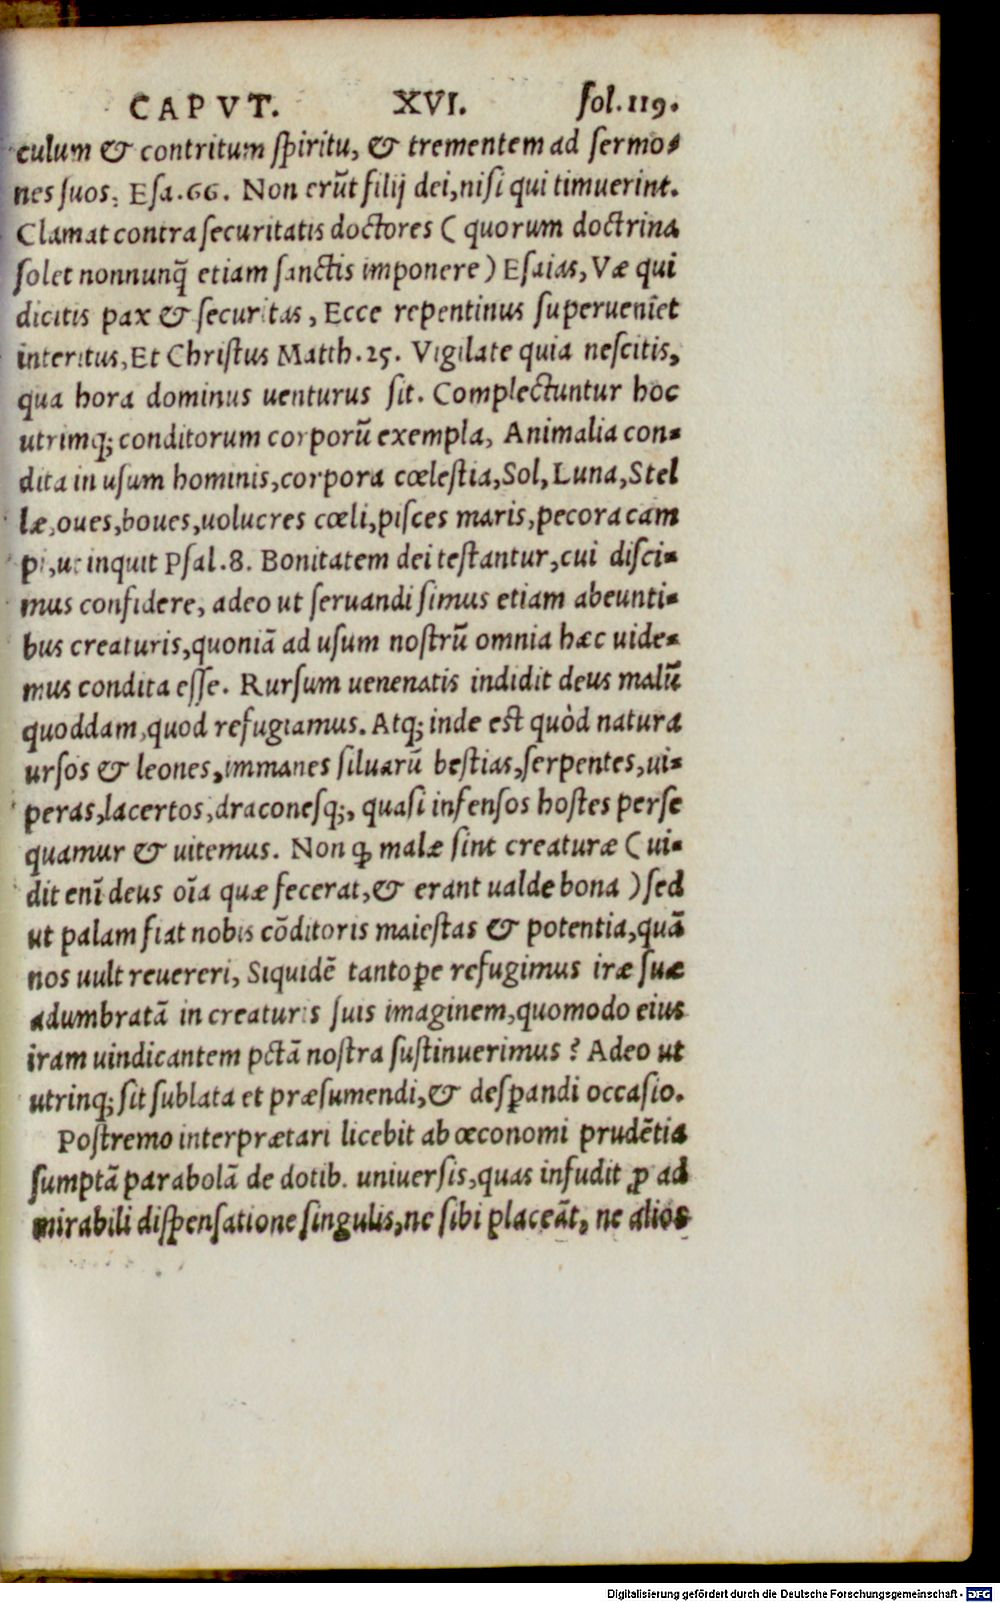 CAPVT. XVI. fol.119.
culum & contritum spiritu, & trementem ad sermo-
nes suos. Esa.66. Non erũt filij dei, nisi qui timuerint.
Clamat contra securitatis doctores ( quorum doctrina
solet nonnunq̃ etiam sanctis imponere ) Esaias, Væ qui
dicitis pax & securitas, Ecce repentinus superueniet
interitus, Et Christus Matth.25. Vigilate quia nescitis,
qua hora dominus uenturus sit. Complectuntur hoc
utrimq; conditorum corporũ exempla, Animalia con-
dita in usum hominis, corpora cœlestia, Sol, Luna, Stel
læ, oues, boues, uolucres cœli, pisces maris, pecora cam
pi, ut inquit Psal.8. Bonitatem dei testantur, cui disci-
mus confidere, adeo ut seruandi simus etiam abeunti-
bus creaturis, quoniã ad usum nostrũ omnia hæc uide-
mus condita esse. Rursum uenenatis indidit deus malũ
quoddam, quod refugiamus. Atq; inde est quòd natura
ursos & leones, immanes siluarũ bestias, serpentes, ui-
peras, lacertos, draconesq;, quasi infensos hostes perse
quamur & uitemus. Non ꝙ malæ sint creaturæ ( ui-
dit enĩ deus oĩa quæ fecerat, & erant ualde bona ) sed
ut palam fiat nobis cõditoris maiestas & potentia, quã
nos uult reuereri, Siquidẽ tantoꝑe refugimus iræ suæ
adumbratã in creaturis suis imaginem, quomodo eius
iram uindicantem pctã nostra sustinuerimus? Adeo ut
utrinq; sit sublata et præsumendi, & desꝑandi occasio.
Postremo interprætari licebit ab œconomi prudẽtia
sumptã parabolã de dotib. uniuersis, quas infudit ꝓ ad
mirabili dispensatione singulis, ne sibi placeãt, ne alios
Digitalisierung gefördert durch die Deutsche Forschungsgemeinschaft - DFG